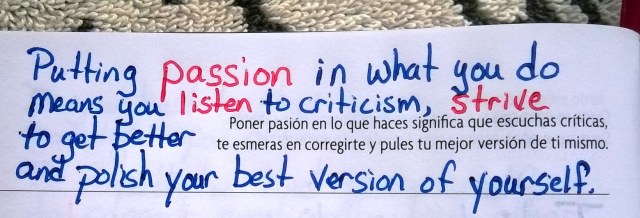 Putting passion in what you do
means you listen to criticism, strive
to get better
Poner pasión en lo que haces significa que escuchas críticas,
te esmeras en corregirte y pules tu mejor versión de ti mismo.
and polish your best version of yourself.